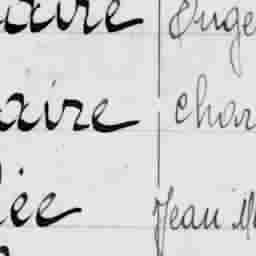 aire Euge
aire Char
ée Jean M